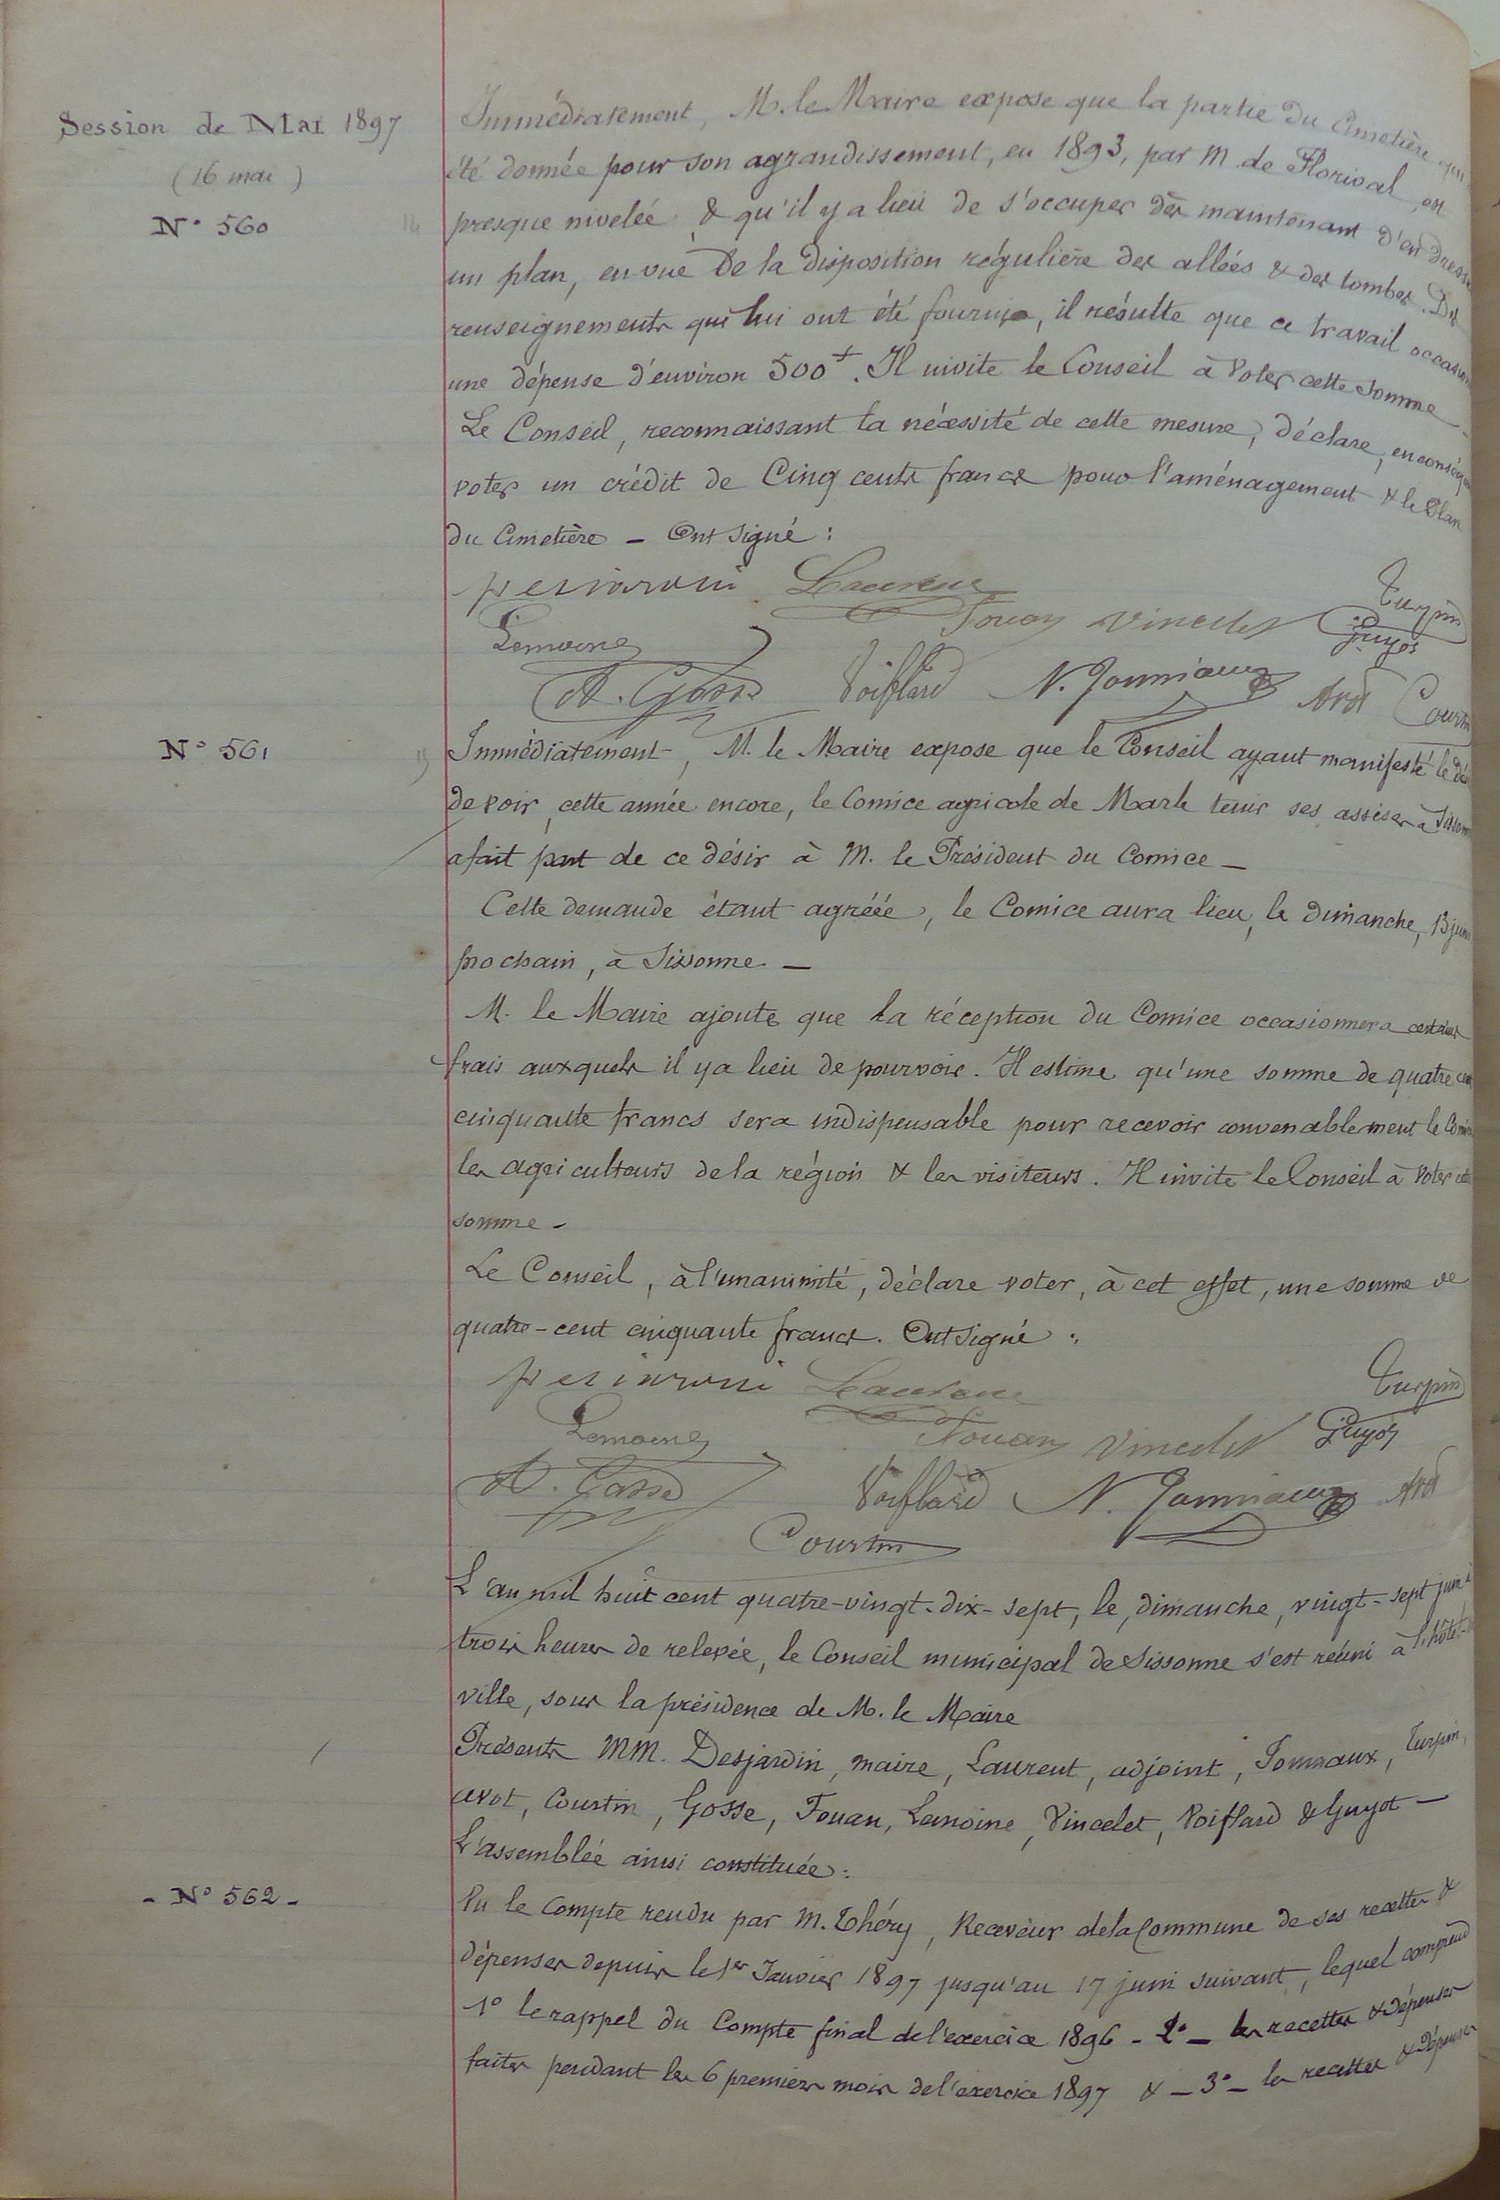 Session de Mai 1897
(16 mai)
N° 560
Immédiatement, M. le Maire expose que la partie du Cimetière qui
été donnée pour son agrandissement, en 1893, par M. de Florival, est
presque nivelée, & qu'il y a lieu de s'occuper dès maintenant d'en
un plan, en vue de la disposition régulière des allées & des tombes. Des
renseignements qui lui ont été fournis, il résulte que ce travail
une dépense d'environ 500f. Il invite le Conseil à voter cette somme.
Le Conseil, reconnaissant la nécessité de cette mesure, déclare,
voter un crédit de Cinq cents francs pour l'aménagement & le Plan
du Cimetière – Ont signé :
Laurent
Turpin
Fouan Vincelet
Guyot
Lemoine
A. Gosse Voiflard N. Jomniaux Avot Courtin
N° 561
Immédiatement, M. le Maire expose que le Conseil ayant manifesté le
de voir, cette année encore, le Comice agricole de Marle tenir ses assises à
a fait part de ce désir à M. le Président du Comice –
Cette demande étant agréée, le Comice aura lieu, le dimanche, 13 juin
prochain, à Sissonne –
M. le Maire ajoute que la réception du Comice occasionnera certains
frais auxquels il y a lieu de pourvoir. Il estime qu'une somme de quatre cent
cinquante francs sera indispensable pour recevoir convenablement le
les agriculteurs de la région & les visiteurs. Il invite le Conseil à voter
somme –
Le Conseil, à l'unanimité, déclare voter, à cet effet, une somme de
quatre-cent cinquante francs. Ont signé :
Laurent
Turpin
Lemoine Fouan Vincelet Guyot
A. Gosse Voiflard N. Jomniaux Avot
Courtin
L'an mil huit cent quatre-vingt-dix-sept, le, dimanche, vingt-sept juin à
trois heures de relevée, le Conseil municipal de Sissonne s'est réuni à l'hôtel-
ville, sous la présidence de M. le Maire
Présents MM. Desjardin, maire, Laurent, adjoint, Jomniaux, Turpin,
avot, Courtin, Gosse, Fouan, Lemoine, Vincelet, Voiflard & Guyot –
L'assemblée ainsi constituée :
- N° 562 -
Vu le Compte rendu par M. Théry, Receveur de la Commune de ses recettes &
dépenses depuis le 1er Janvier 1897 jusqu'au 17 juin suivant, lequel comprend
1° le rappel du Compte final de l'exercice 1896 - 2° – les recettes & dépenses
faites pendant les 6 premiers mois de l'exercice 1897 & – 3° – les recettes & dépenses